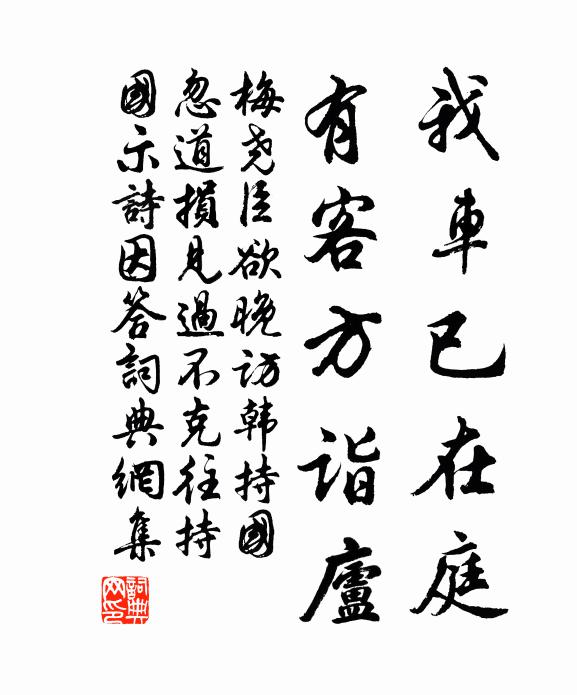 我車已在庭
有客方詣廬
梅堯臣欲晚訪韓持國
忽道損見過不克往持
國示詩因答詞典網集
詞典
网印